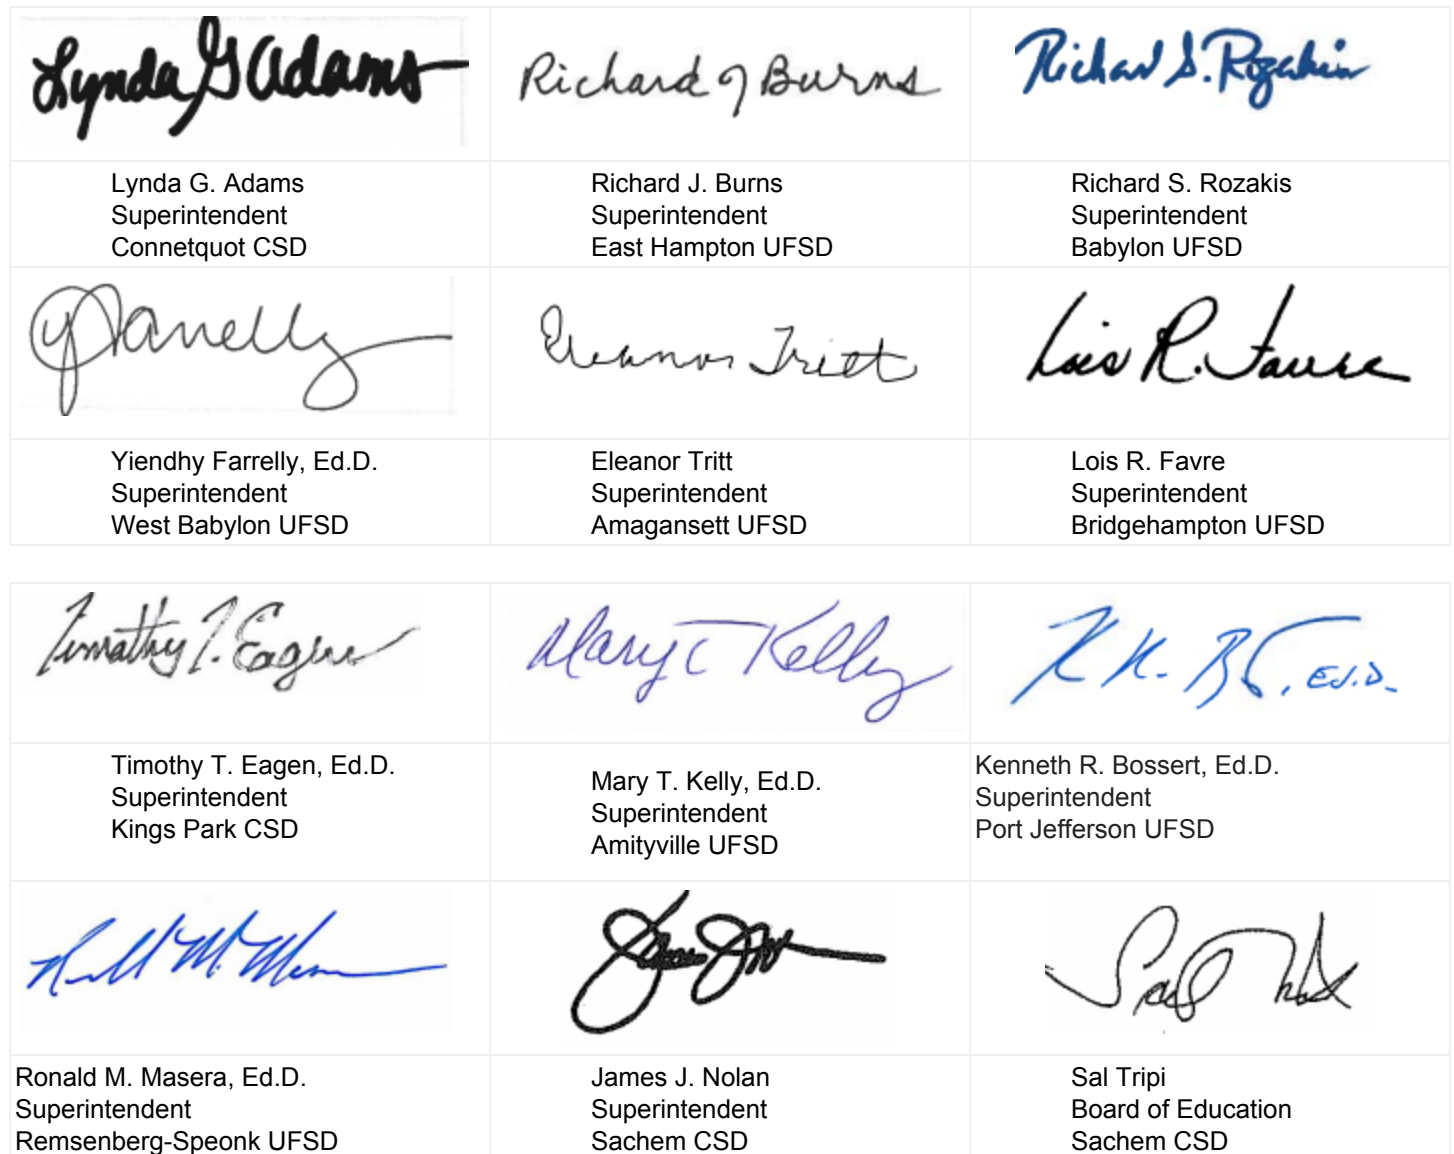 Lynda G Adams
Richard J Burns
Richard S. Rozakis
Lynda G. Adams
Superintendent
Connetquot CSD
Richard J. Burns
Superintendent
East Hampton UFSD
Richard S. Rozakis
Superintendent
Babylon UFSD
YFarrelly
Eleanor Tritt
Lois R. Favre
Yiendhy Farrelly, Ed.D.
Superintendent
West Babylon UFSD
Eleanor Tritt
Superintendent
Amagansett UFSD
Lois R. Favre
Superintendent
Bridgehampton UFSD
Timothy T. Eagen
Mary T Kelly
Ed.D.
Timothy T. Eagen, Ed.D.
Superintendent
Kings Park CSD
Mary T. Kelly, Ed.D.
Superintendent
Amityville UFSD
Kenneth R. Bossert, Ed.D.
Superintendent
Port Jefferson UFSD
Ronald M. Masera, Ed.D.
Superintendent
Remsenberg-Speonk UFSD
James J. Nolan
Superintendent
Sachem CSD
Sal Tripi
Board of Education
Sachem CSD